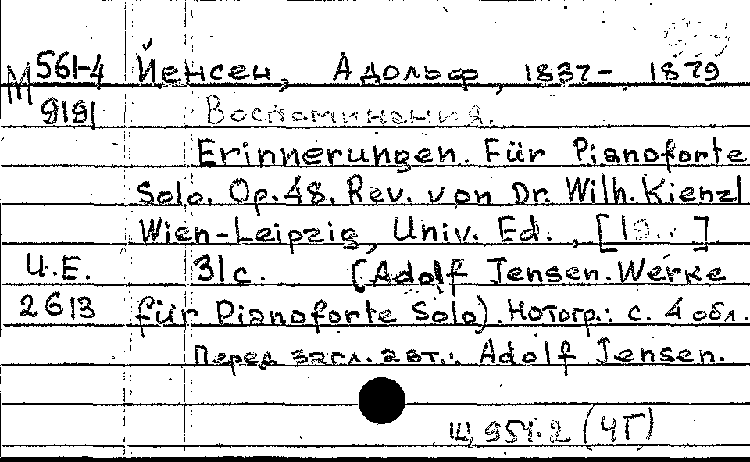 М 561-4 Йенсен, Адольф, 1837- 1879
9191 Воспоминания.
Erinnerungen. Für Pianoforte
Solo. Op. 48. Rev. von Dr. Wilh. Kienzl
Wien-Leipzig, Univ. Ed., [19..]
U.E. 31c. (Adolf Jensen. Werke
2613 für Pianoforte Solo). Нотогр.: с. 4 обл.
Перед загл. авт.: Adolf Jensen.
Щ 951.2 (4Г)